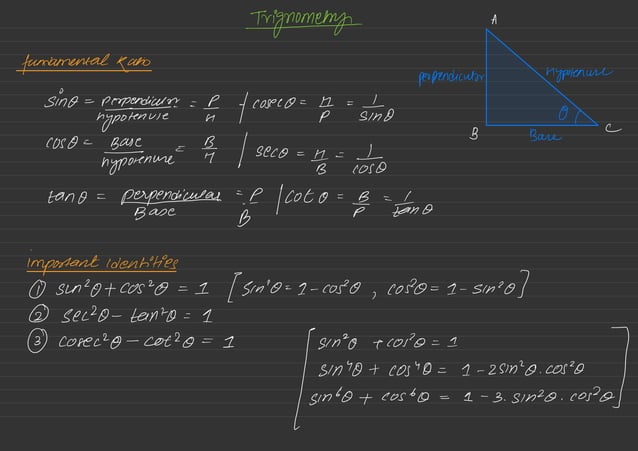 Trignometry
A
fundamental Ratio
perpendicular
Hypotenuse
θ
B
Base
C
sinθ = perpendicular/hypotenuse = P/H / cosecθ = H/P = 1/sinθ
cosθ = Base/hypotenuse = B/H / secθ = H/B = 1/cosθ
tanθ = perpendicular/Base = P/B / cotθ = B/P = 1/tanθ
important identities
① sin²θ + cos²θ = 1 [sin²θ = 1 - cos²θ , cos²θ = 1 - sin²θ]
② sec²θ - tan²θ = 1
③ cosec²θ - cot²θ = 1
[sin²θ + cos²θ = 1
sin⁴θ + cos⁴θ = 1 - 2sin²θ.cos²θ
sin⁶θ + cos⁶θ = 1 - 3.sin²θ.cos²θ]